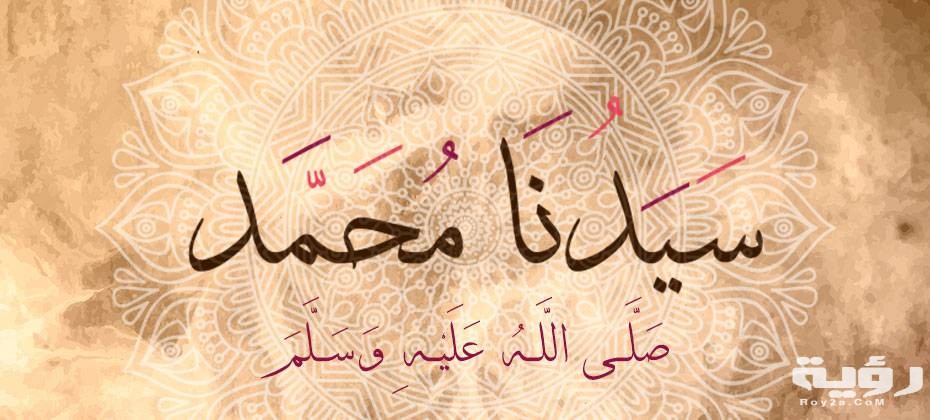 سَيَدُنَا مُحَمَّد
صَلَّى اللَّهُ عَلَيْهِ وَسَلَّمَ
رؤية
Roy2a.CoM